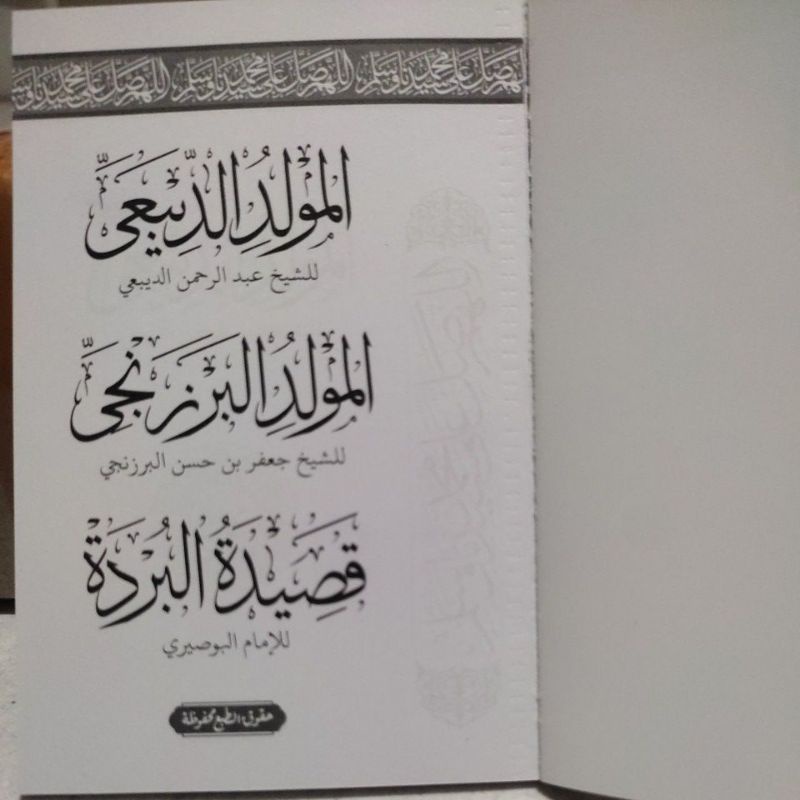 اللهم صل على محمد وسلم اللهم صل على محمد وسلم اللهم صل على محمد وسلم
المولدُ الدِّيبَعيّ
للشيخ عبد الرحمن الديبعي
المولدُ البَرزَنجيّ
للشيخ جعفر بن حسن البرزنجي
قَصِيدَةُ البُردَة
للإمام البوصيري
حقوق الطبع محفوظة